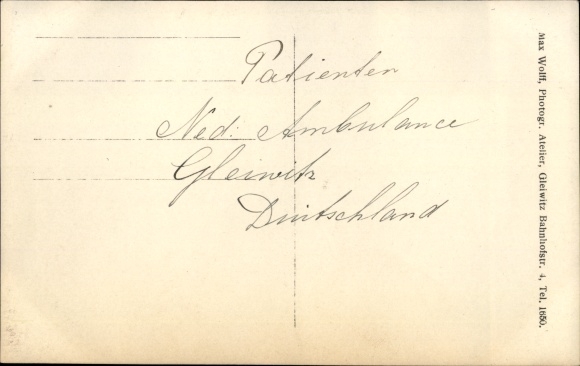 Patienten
Ned: Ambulance
Gleiwitz
Duitschland
Max Wolff, Photogr. Atelier, Gleiwitz Bahnhofstr. 4, Tel. 1650.